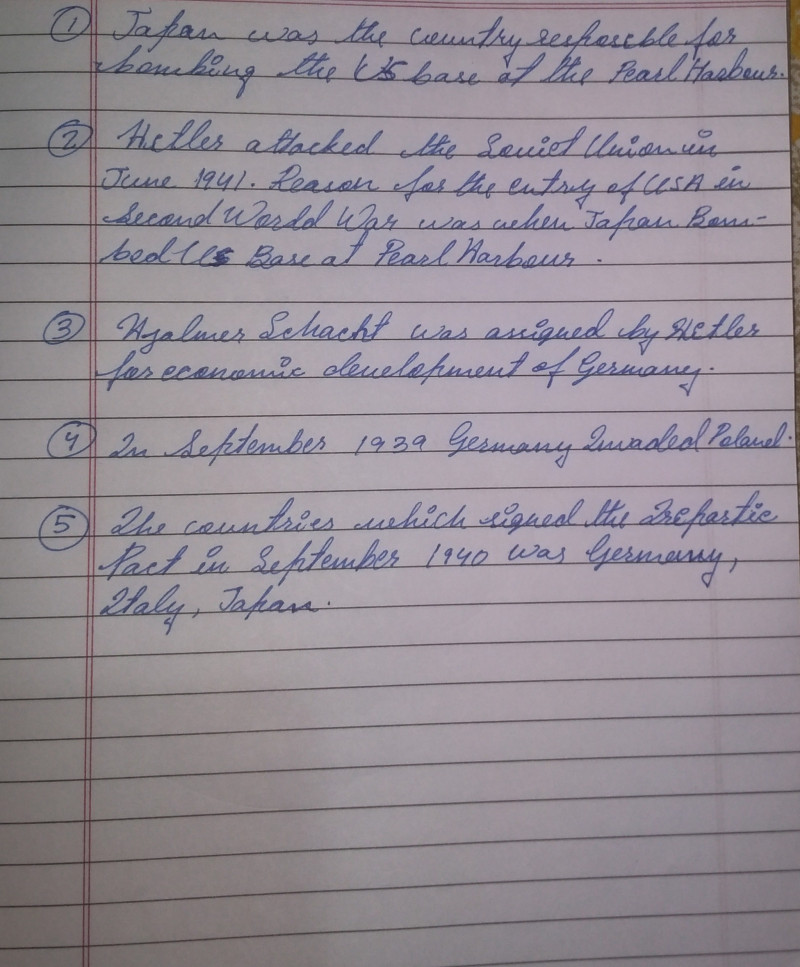 ① Japan was the country resposible for
bombing the US base at the Pearl Harbour.
② Hitler attacked the Soviet Union in
June 1941. Reason for the entry of USA in
Second World War was when Japan Bom-
bed US Base at Pearl Harbour.
③ Hjalmer Schacht was assigned by Hitler
for economic development of Germany.
④ In September 1939 Germany Invaded Poland.
⑤ The countries which signed the Trepartie
Pact in September 1940 was Germany,
Italy, Japan.